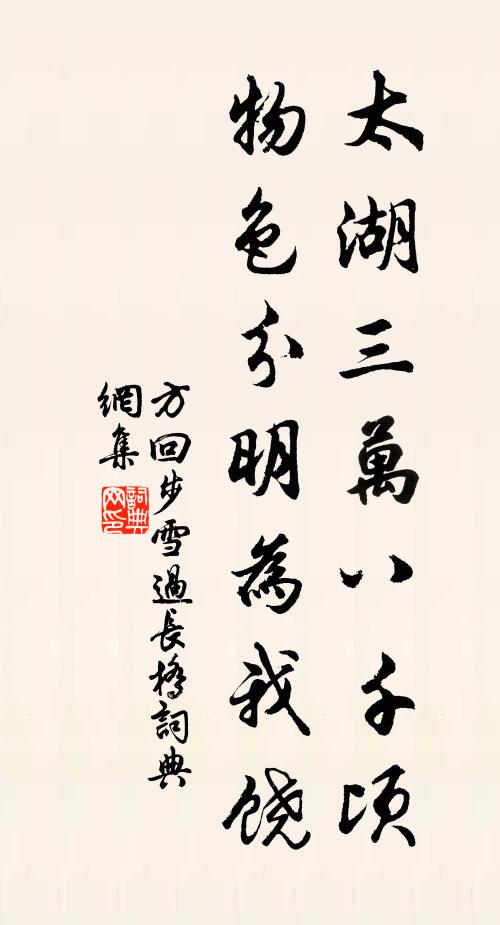 太湖三萬八千頃
物色分明為我饒
方回步雪過長橋詞典
網集
詞典
网印